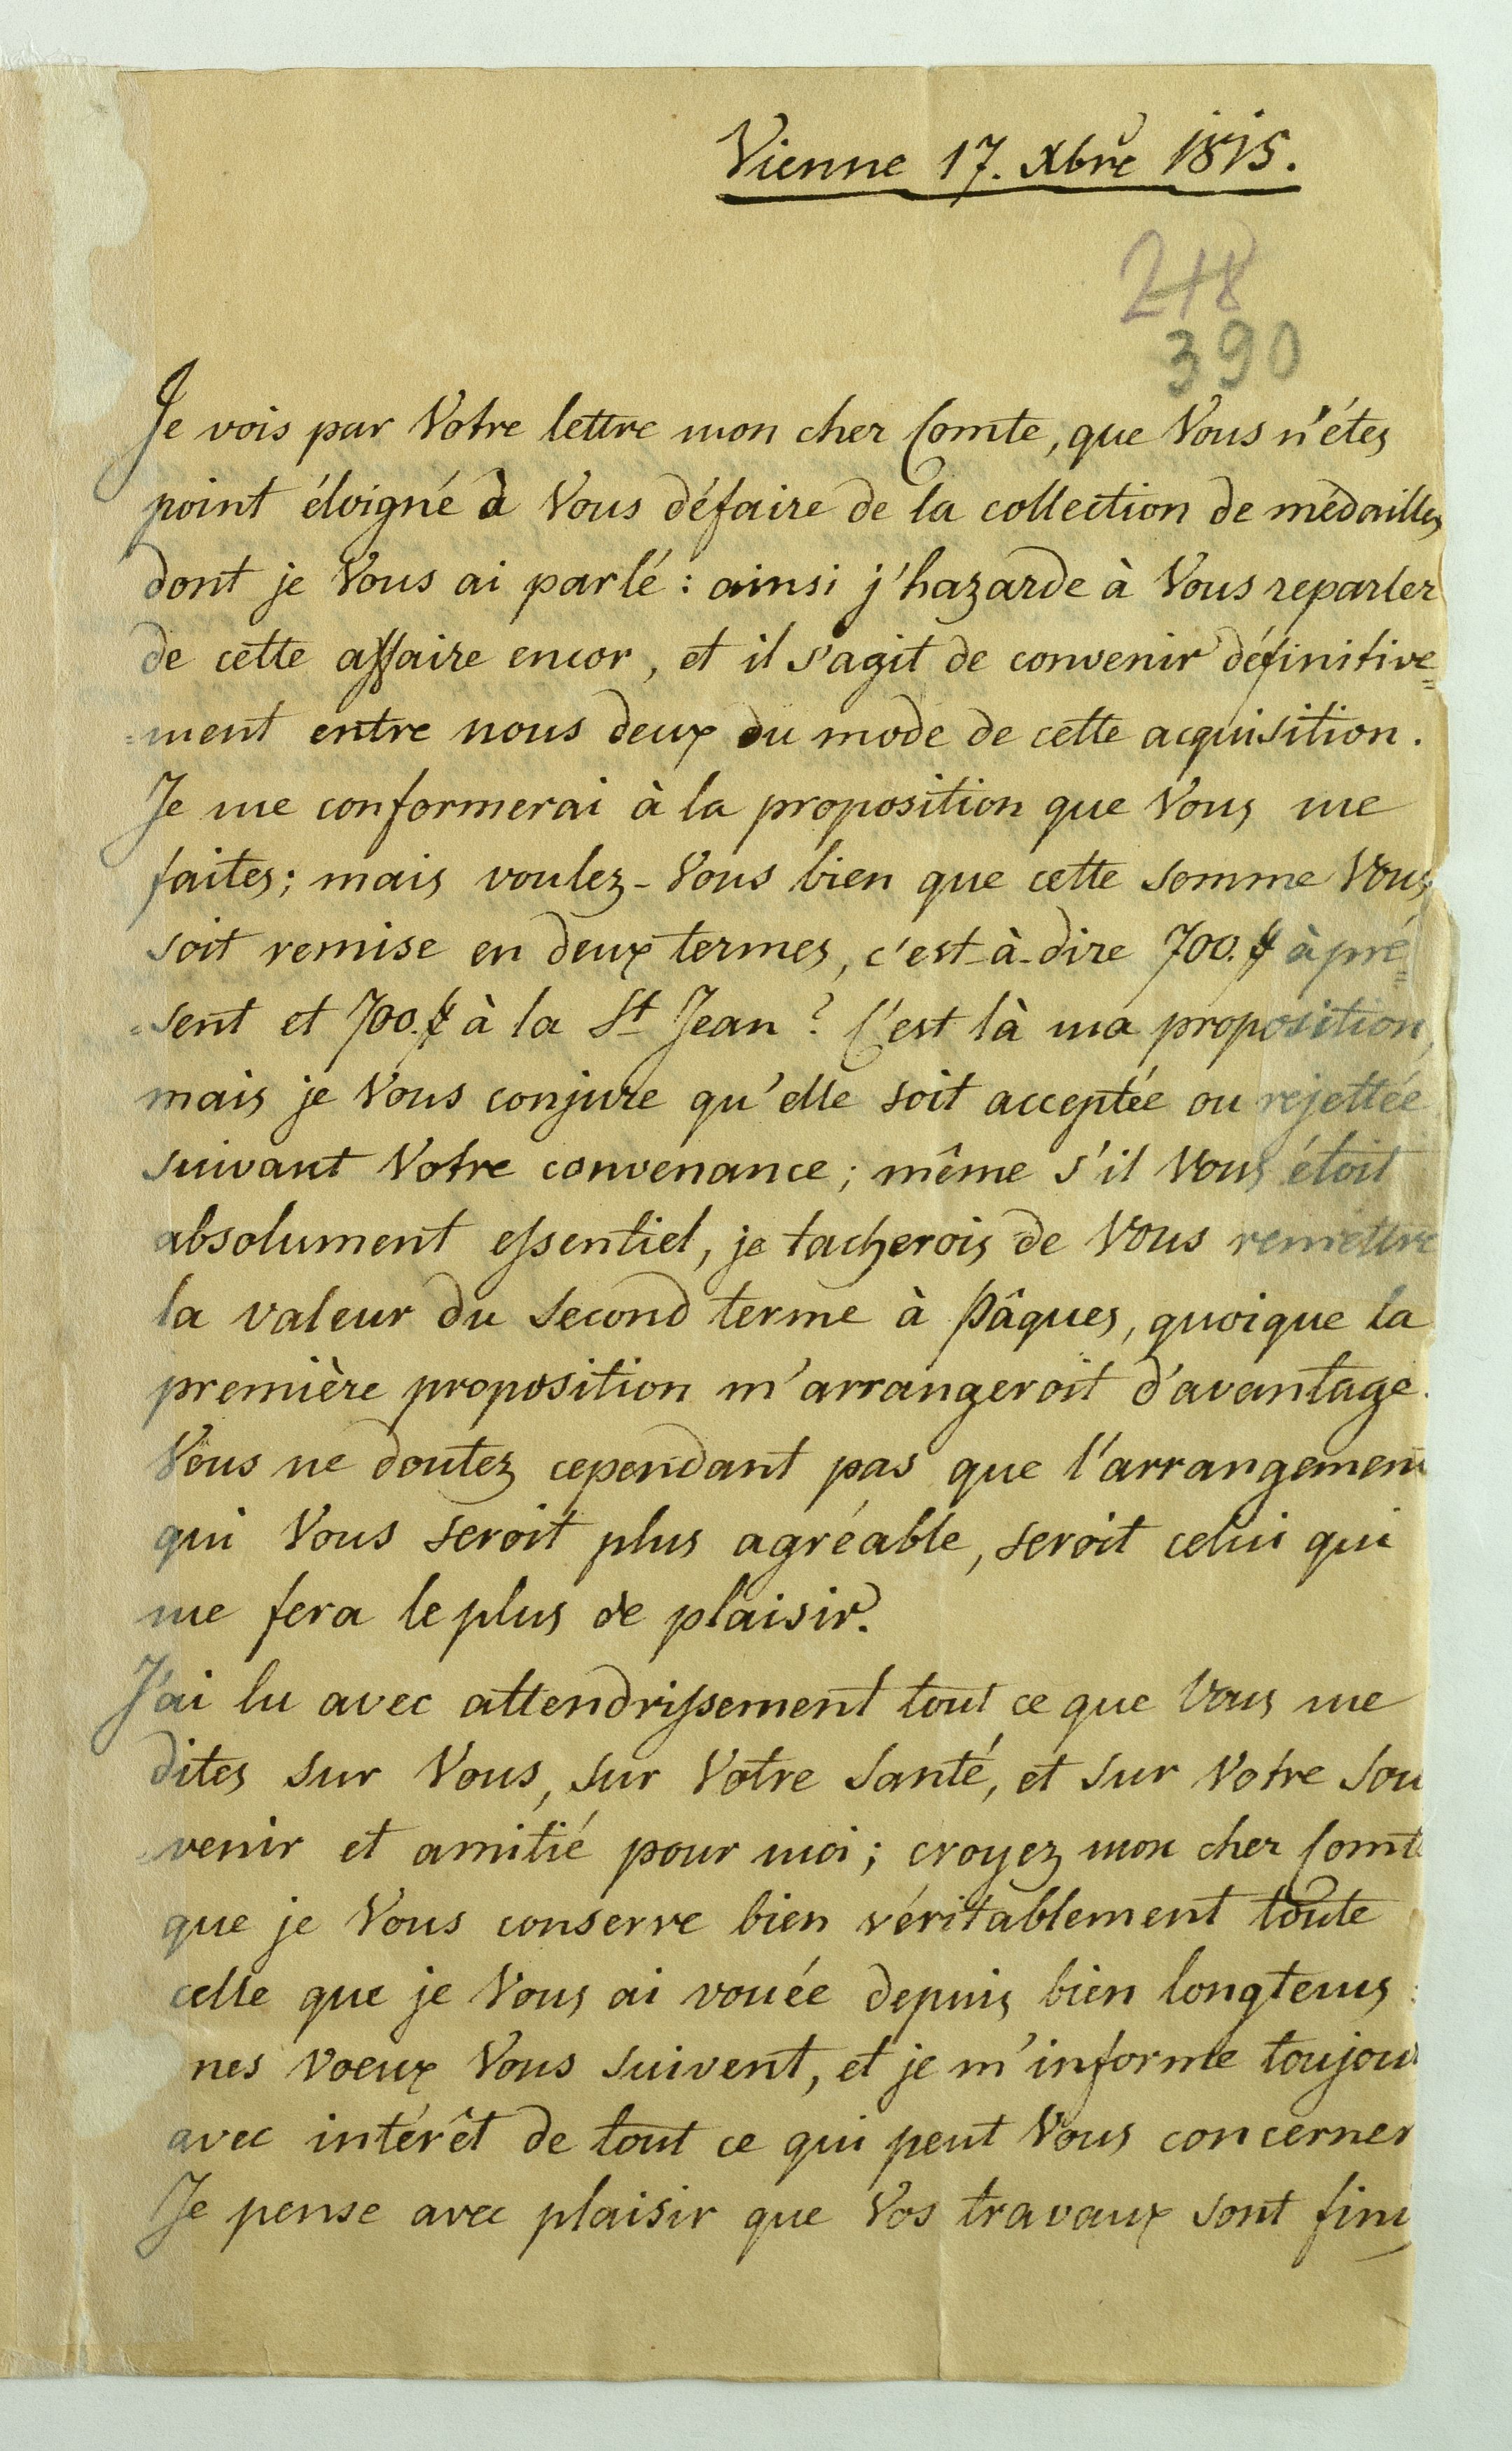 Vienne 17. Xbre 1815.
218
390
Je vois par Votre lettre mon cher Comte, que Vous n'étes
point éloigné à Vous défaire de la collection de médailles
dont je Vous ai parlé : ainsi j'hazarde à Vous reparler
de cette affaire encor, et il s'agit de convenir définitive=
=ment entre nous deux du mode de cette acquisition.
Je me conformerai à la proposition que Vous me
faites; mais voulez-Vous bien que cette somme Vous
soit remise en deux termes, c'est-à-dire 700. # à pré=
=sent et 700. # à la St Jean ? C'est là ma proposition,
mais je Vous conjure qu'elle soit acceptée ou rejettée
suivant Votre convenance; même s'il Vous étoit
absolument essentiel, je tacherois de Vous remettre
la valeur du second terme à Pâques, quoique la
première proposition m'arrangeroit d'avantage.
Vous ne doutez cependant pas que l'arrangement
qui Vous seroit plus agréable, seroit celui qui
me fera le plus de plaisir.
J'ai lu avec attendrissement tout ce que Vous me
dites sur Vous, sur Votre santé, et sur Votre sou
=venir et amitié pour moi; croyez mon cher Comte
que je Vous conserve bien véritablement toute
celle que je Vous ai vouée depuis bien longtems :
mes voeux Vous suivent, et je m'informe toujours
avec intérêt de tout ce qui peut Vous concerner
Je pense avec plaisir que Vos travaux sont finis